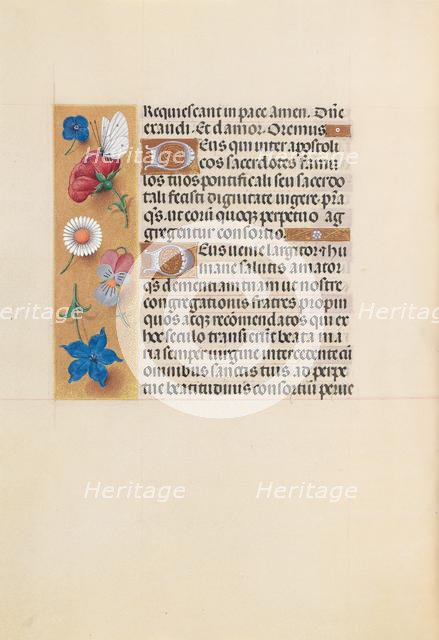 Requiescant in pace amen. Dñe
exaudi. Et clamor. Oremus
Deus qui inter apostoli
cos sacerdotes famu
los tuos pontificali seu sacerdo
tali fecisti dignitate vigere: pr̃a
q̃s. ut eorũ quoq3 perpetuo ag
gregentur consortio.
Deus venie largitor: ⁊ hu
mane salutis amator
q̃s clementiam tuam ut nostre
congregationis fratres propin
quos atq3 recõmendatos qui ex
hoc seculo transierũt beata ma
ria semper virgine intercedente cũ
omnibus sanctis tuis. ad perpe
tue beatitudinis consortiũ perve
Heritage
Heritage
Heritage
Heritage
Heritage
Heritage